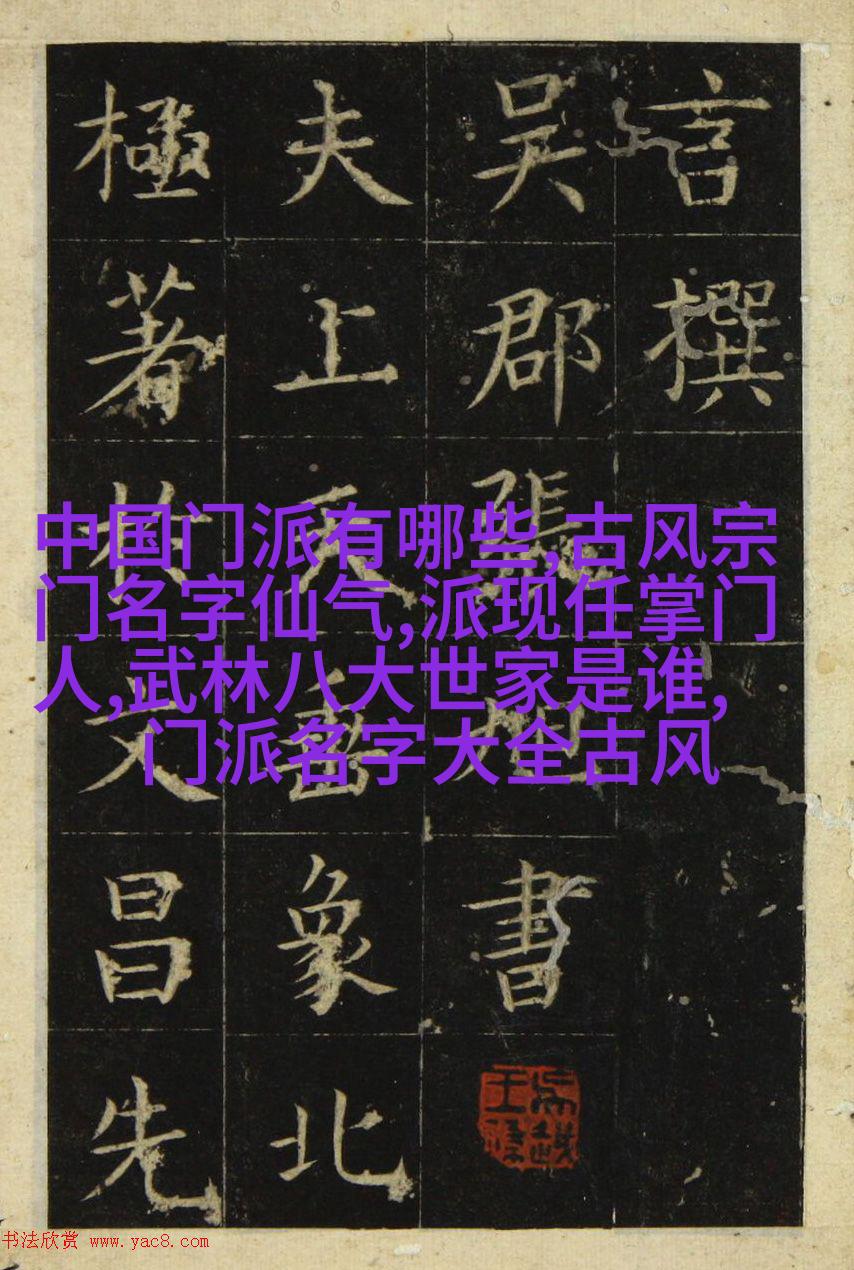 言撰
吳郡張旭書
夫上天垂象北
極著扵文昌先
中国门派有哪些,古风宗
门名字仙气,派现任掌门
人,武林八大世家是谁,
门派名字大全古风
书法欣赏 www.yac8.com